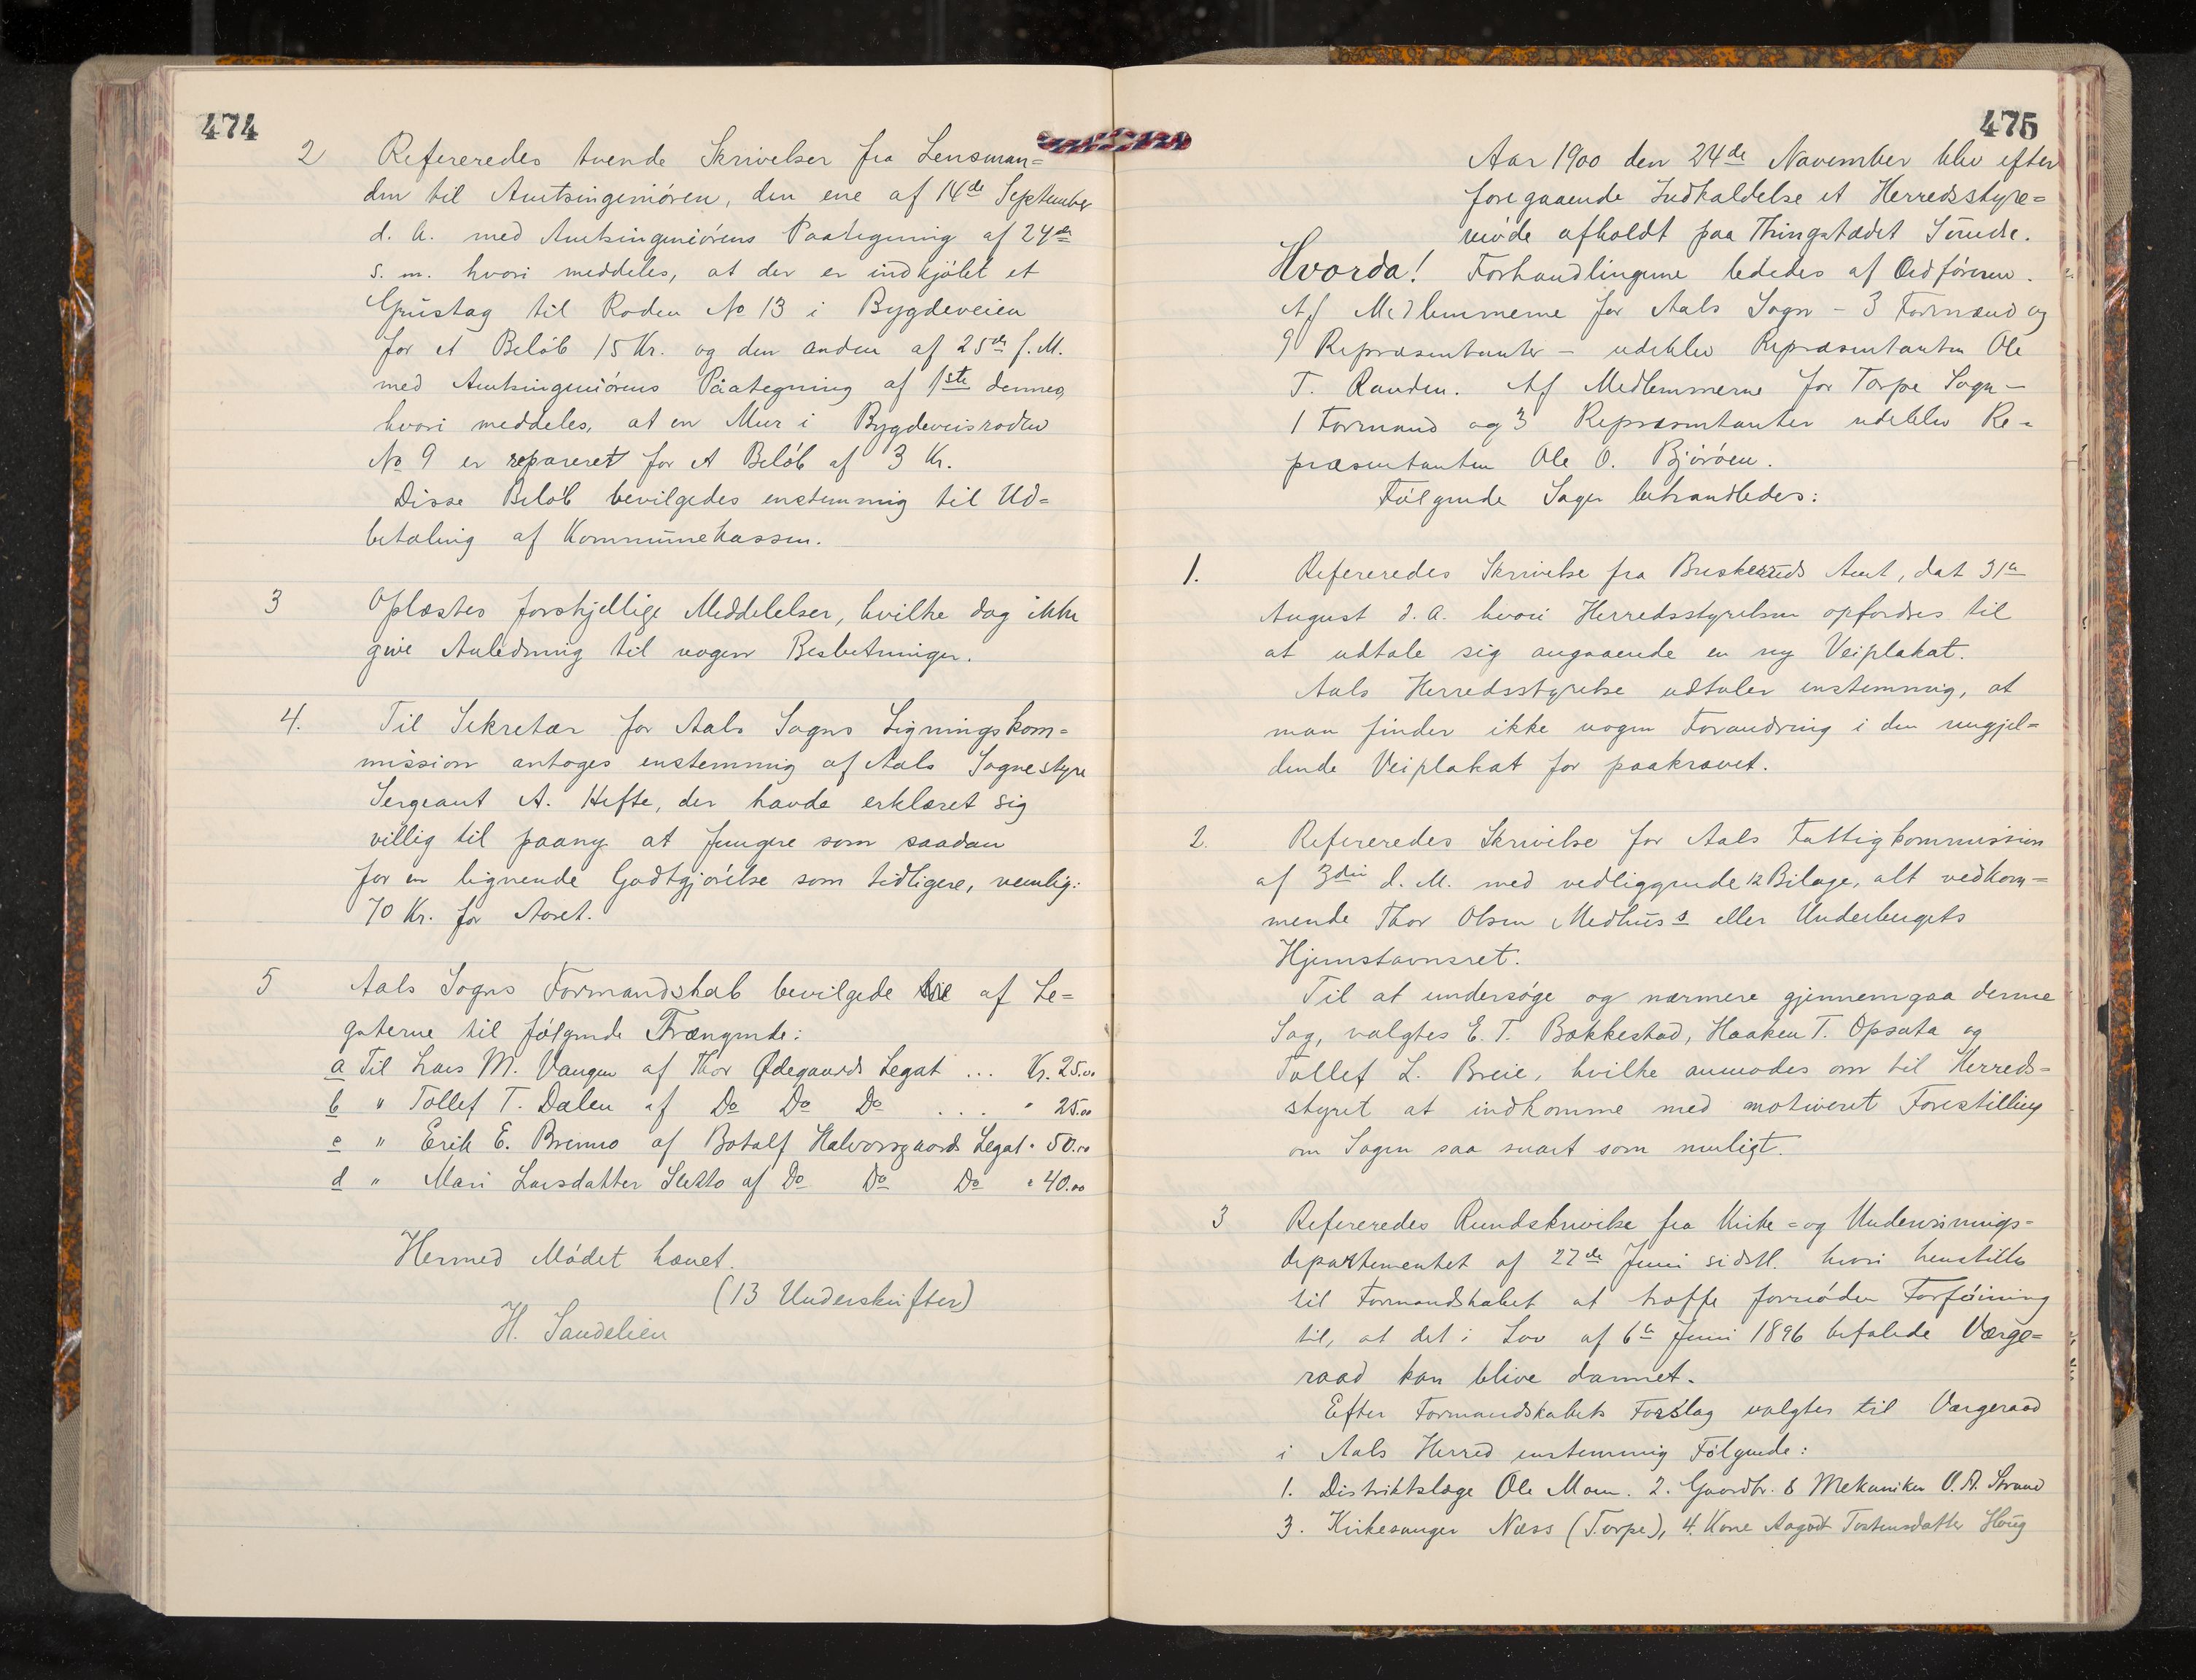 474
2 Refereredes tvende Skrivelser fra Lensman=
den til Amtsingeniøren, den ene af 14de September
d. A. med Amtsingeniørens Paategning af 24de
s. m. hvori meddeles, at der er indkjøbt et
Grustag til Roden No 13 i Bygdeveien
for et Beløb 15 Kr. og den anden af 25de f. M.
med Amtsingeniørens Paategning af 1ste dennes,
hvori meddeles, at en Mur i Bygdeveisroden
No 9 er repareret for et Beløb af 3 Kr.
Disse Beløb bevilgedes enstemmig til Ud=
betaling af Kommunekassen.
3 Oplæstes forskjellige Meddelelser, hvilke dog ikke
give Anledning til nogen Beslutninger.
4. Til Sekretær for Aals Sogns Ligningskom=
mission antoges enstemmig af Aals Sognestyre
Sergeant A. Hefte, der havde erklæret sig
villig til paany at fungere som saadan
for en lignende Godtgjørelse som tidligere, nemlig:
70 Kr. for Aaret.
5 Aals Sogns Formandskab bevilgede af Le=
gaterne til følgende Trængende:
a Til Lars M. Vangen af Thor Ødegaards Legat ... Kr. 25.00
b " Tollef T. Dalen af Do Do Do ... " 25.00
c " Erik E. Brenno af Botolf Halvorsgaards Legat " 50.00
d " Mari Larsdatter Sletto af Do Do Do " 40.00
Hermed Mødet hævet.
(13 Underskrifter)
H. Sandelien
475
Aar 1900 den 24de November blev efter
foregaaende Indkaldelse et Herredsstyre=
møde afholdt paa Thingstedet Sundre.
Hvorda! Forhandlingerne lededes af Ordføreren.
Af Medlemmerne for Aals Sogn - 3 Formænd og
9 Repræsentanter - udeblev Repræsentanten Ole
T. Randen. Af Medlemmerne for Torpe Sogn -
1 Formand og 3 Repræsentanter udeblev Re=
præsentanten Ole O. Bjøróen.
Følgende Sager behandledes:
1. Refereredes Skrivelse fra Buskeruds Amt, dat 31te
August d. A. hvori Herredsstyrelsen opfordres til
at udtale sig angaaende en ny Veiplakat.
Aals Herredsstyrelse udtaler enstemmig, at
man finder ikke nogen Forandring i den nugjel=
dende Veiplakat for paakrævet.
2. Refereredes Skrivelse for Aals Fattigkommission
af 3die d. M. med vedliggende 12 Bilage, alt vedkom=
mende Thor Olsen Medhus s eller Underbergets
Hjemstavnsret.
Til at undersøge og nærmere gjennemgaa denne
Sag, valgtes E. T. Bakkestad, Haaken T. Opsata og
Tollef L. Breie, hvilke anmodes om til Herreds=
styret at indkomme med motiveret Forestilling
om Sagen saa snart som muligt.
3 Refereredes Rundskrivelse fra Kirke=og Undervisnings=
departementet af 27de Juni sidstl. hvori henstilles
til Formandskabet at træffe fornøden Forføining
til, at det i Lov af 6te Juni 1896 befalede Værge=
raad kan blive dannet.
Efter Formandskabets Forslag valgtes til Værgeraad
i Aals Herred enstemmig Følgende:
1. Distriktslæge Ole Moen. 2. Gaardbr. & Mekaniker O. A. Strand
3. Kirkesanger Næss (Torpe), 4. Kone Aagot Tostensdatter Haug